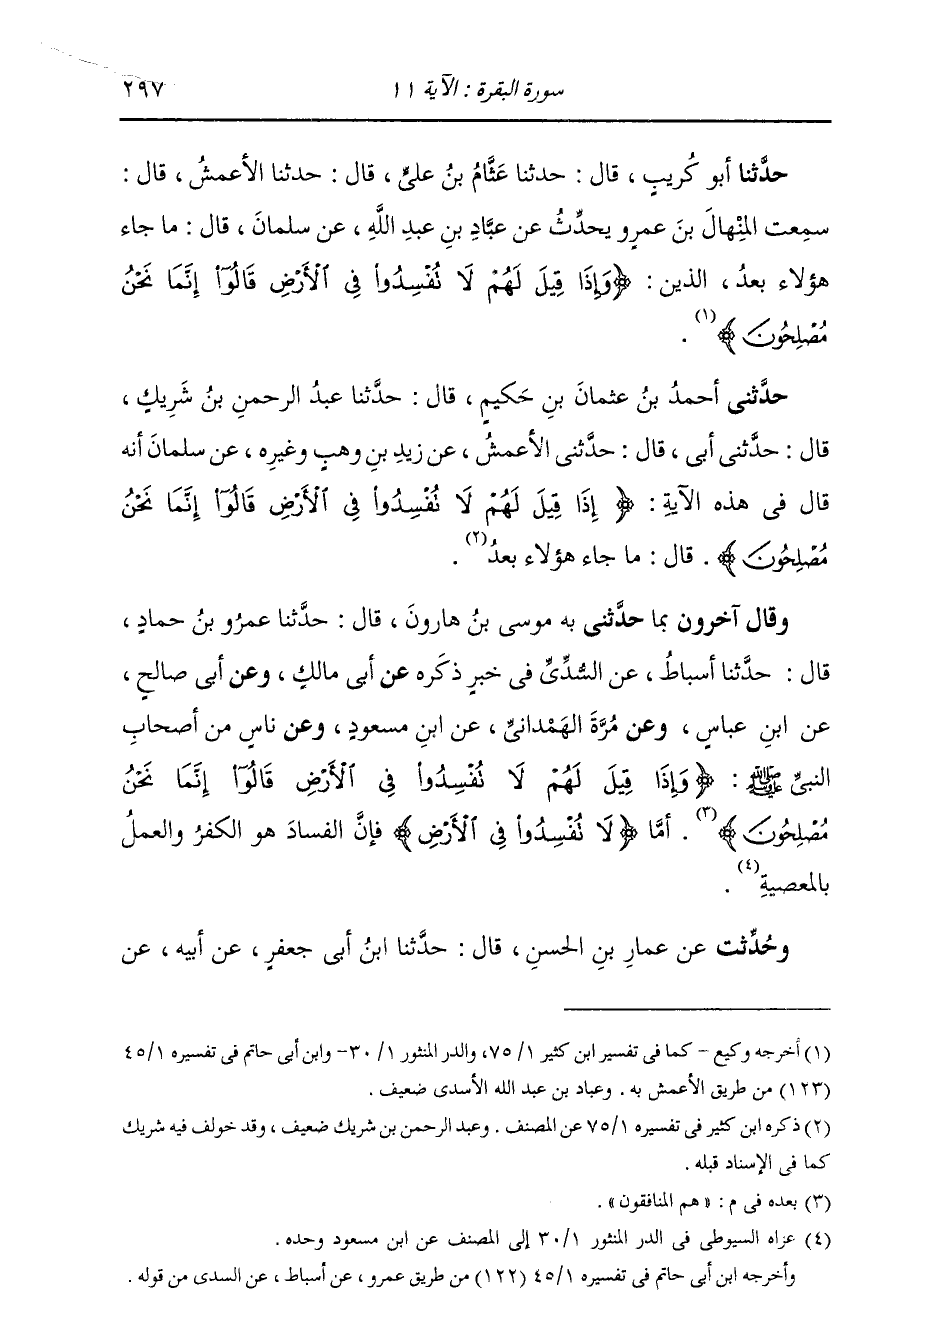 سورة البقرة : الآية ١١
٢٩٧
حدَّثنا أبو كُريبٍ ، قال : حدثنا عَثَّامُ بنُ علىٍّ ، قال : حدثنا الأعمشُ ، قال :
سمِعت المِنْهالَ بنَ عمرٍو يحدِّثُ عن عبَّادِ بنِ عبدِ اللَّهِ ، عن سلمانَ ، قال : ما جاء
هؤلاء بعدُ ، الذين : ﴿ وَإِذَا قِيلَ لَهُمْ لَا نُفْسِدُوا۟ فِى ٱلْأَرْضِ قَالُوٓا۟ إِنَّمَا نَحْنُ
مُصْلِحُونَ ﴾ (١) .
حدَّثنى أحمدُ بنُ عثمانَ بنِ حَكيمٍ ، قال : حدَّثنا عبدُ الرحمنِ بنُ شَريكٍ ،
قال : حدَّثنى أبى ، قال : حدَّثنى الأعمشُ ، عن زيدِ بنِ وهبٍ وغيرِه ، عن سلمانَ أنه
قال فى هذه الآيةِ : ﴿ إِذَا قِيلَ لَهُمْ لَا نُفْسِدُوا۟ فِى ٱلْأَرْضِ قَالُوٓا۟ إِنَّمَا نَحْنُ
مُصْلِحُونَ ﴾ . قال : ما جاء هؤلاء بعدُ (٢) .
وقال آخرون بما حدَّثنى به موسى بنُ هارونَ ، قال : حدَّثنا عمرُو بنُ حمادٍ ،
قال : حدَّثنا أسباطُ ، عن السُّدِّىِّ فى خبرٍ ذكَره عن أبى مالكٍ ، وعن أبى صالحٍ ،
عن ابنِ عباسٍ ، وعن مُرَّةَ الهَمْدانىِّ ، عن ابنِ مسعودٍ ، وعن ناسٍ من أصحابِ
النبىِّ ﷺ : ﴿ وَإِذَا قِيلَ لَهُمْ لَا نُفْسِدُوا۟ فِى ٱلْأَرْضِ قَالُوٓا۟ إِنَّمَا نَحْنُ
مُصْلِحُونَ ﴾ (٣) . أمَّا ﴿ لَا نُفْسِدُوا۟ فِى ٱلْأَرْضِ ﴾ فإنَّ الفسادَ هو الكفرُ والعملُ
بالمعصيةِ (٤) .
وحُدِّثت عن عمارِ بنِ الحسنِ ، قال : حدَّثنا ابنُ أبى جعفرٍ ، عن أبيه ، عن
(١) أخرجه وكيع - كما فى تفسير ابن كثير ١/ ٧٥، والدر المنثور ١/ ٣٠- وابن أبى حاتم فى تفسيره ١/ ٤٥
(١٢٣) من طريق الأعمش به . وعباد بن عبد الله الأسدى ضعيف .
(٢) ذكره ابن كثير فى تفسيره ١/ ٧٥ عن المصنف . وعبد الرحمن بن شريك ضعيف ، وقد خولف فيه شريك
كما فى الإسناد قبله .
(٣) بعده فى م : « هم المنافقون » .
(٤) عزاه السيوطى فى الدر المنثور ١/ ٣٠ إلى المصنف عن ابن مسعود وحده .
وأخرجه ابن أبى حاتم فى تفسيره ١/ ٤٥ (١٢٢) من طريق عمرو ، عن أسباط ، عن السدى من قوله .